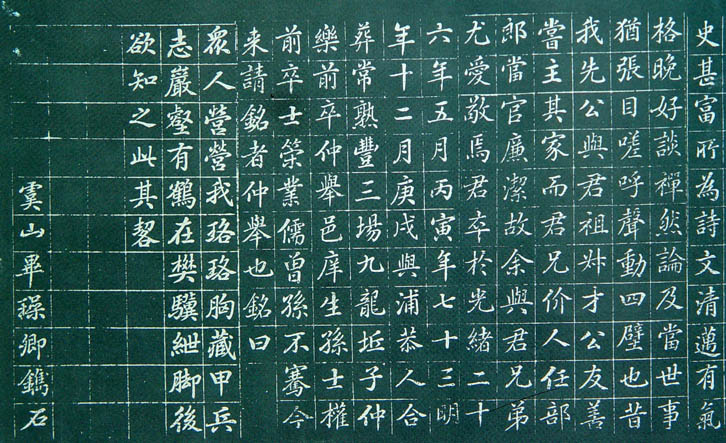 史甚富所為詩文清邁有氣
格晚好談禪然論及當世事
猶張目嗟呼聲動四壁也昔
我先公與君祖才公友善
當主其家而君兄价人任部
郎當官廉潔故余與君兄弟
尤愛敬焉君卒於光緒二十
六年五月丙寅年七十三明
年十二月庚戌與浦恭人合
葬常熟豐三場九龍坵子仲
樂前卒仲舉邑庠生孫士權
前卒士榘業儒曾孫不騫今
来請銘者仲舉也銘曰
眾人營營我珞珞胸藏甲兵
志巖壑有鶴在樊驥紲脚後
欲知之此其
虞山畢卿鐫石